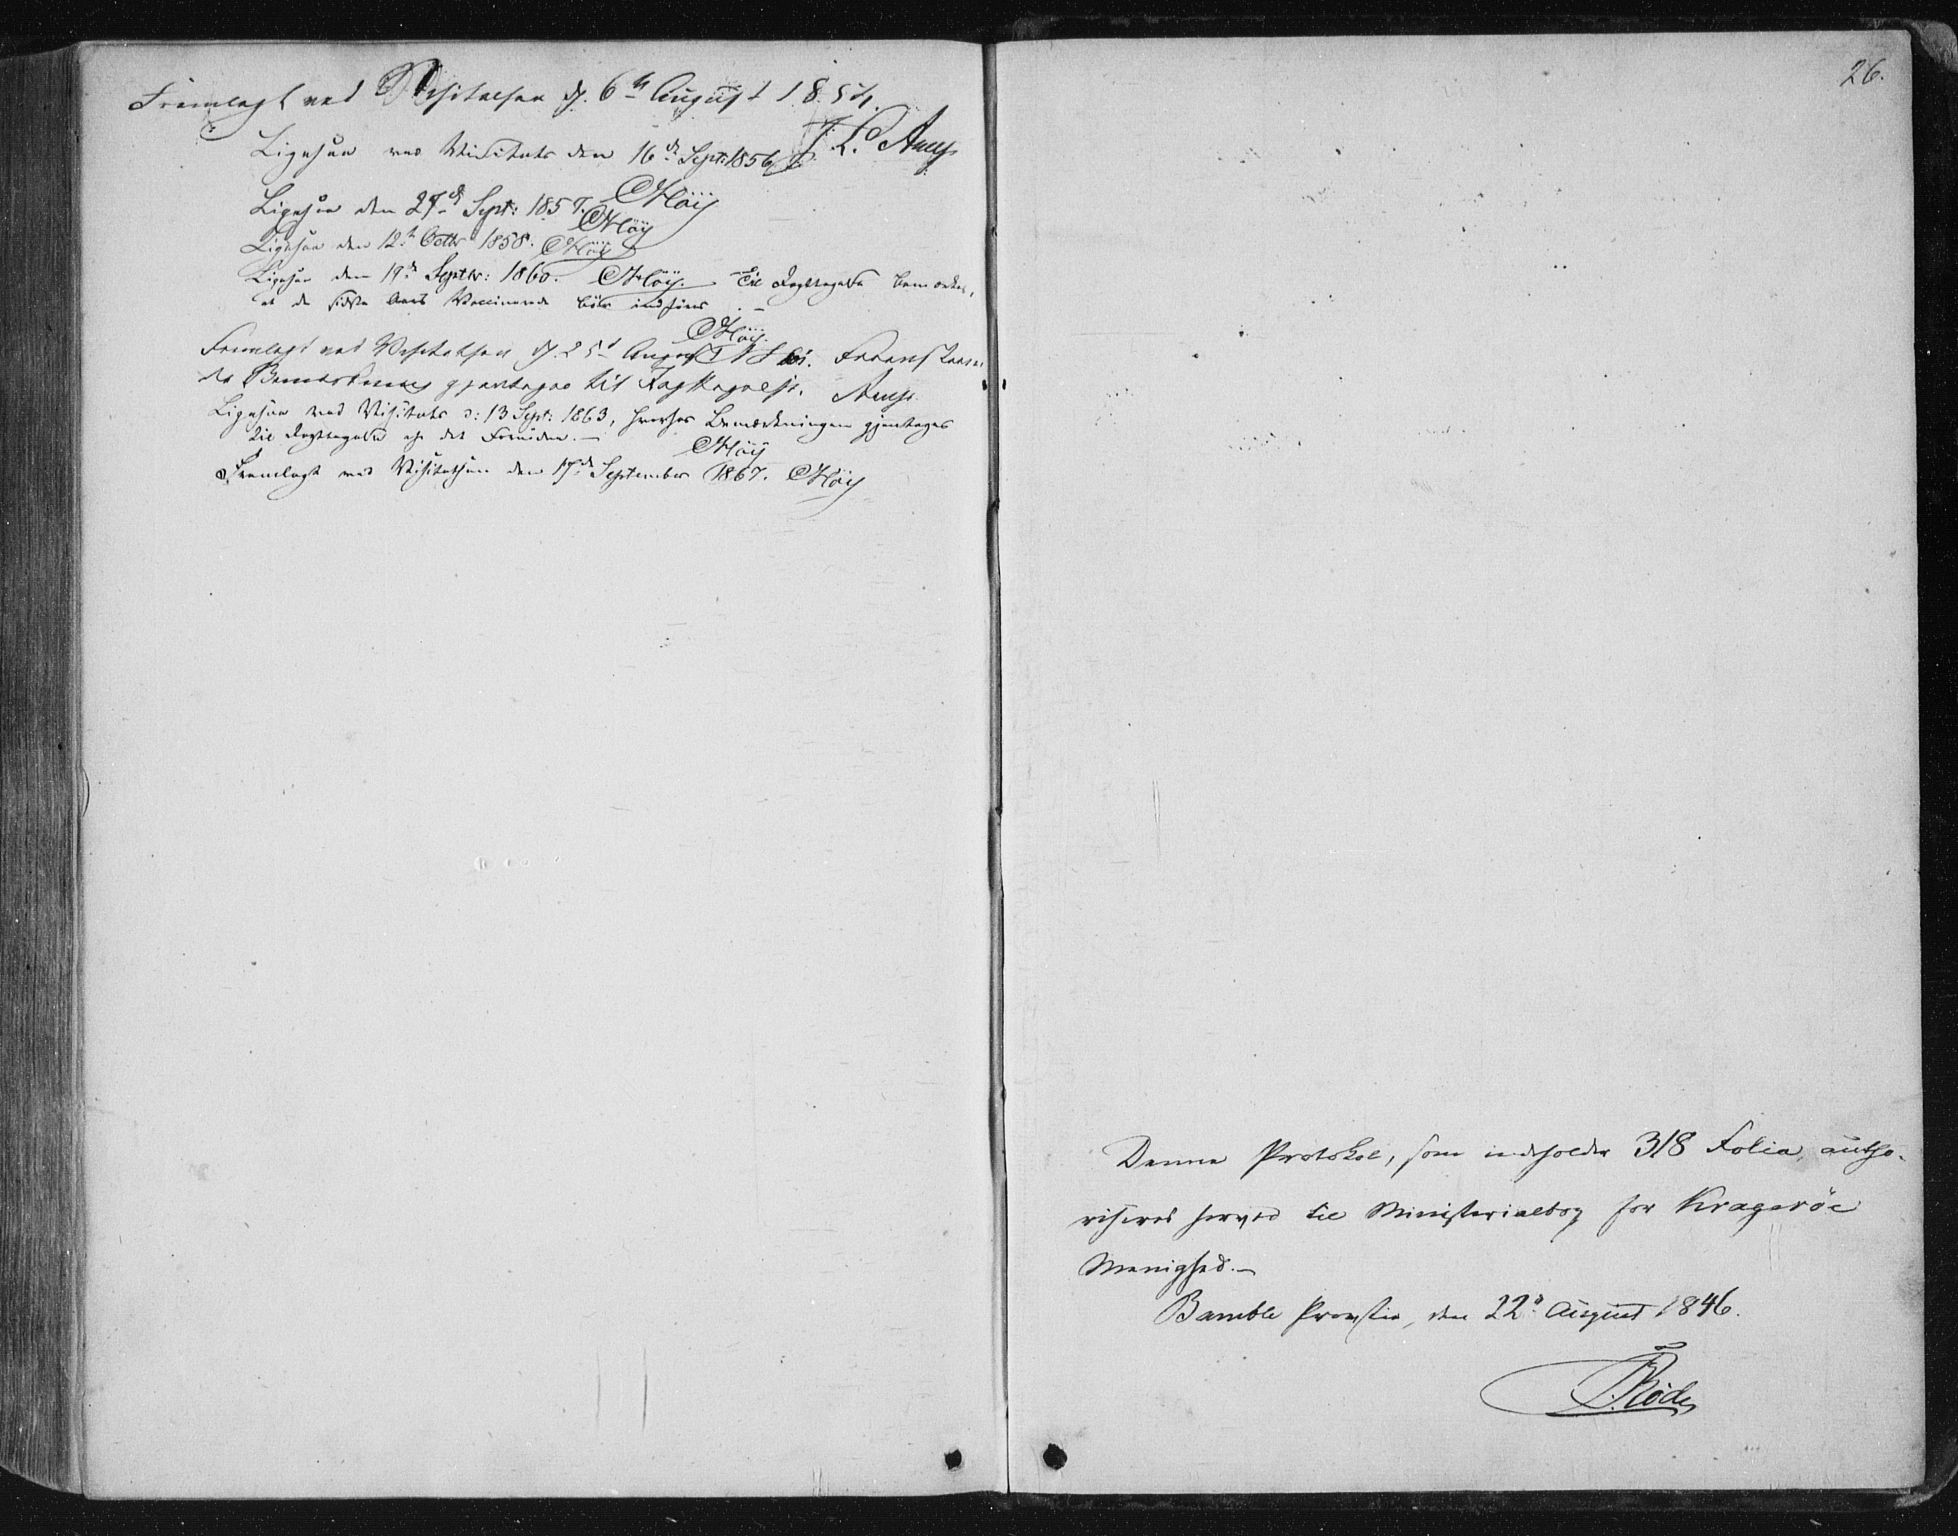 Fremlagt ved Visitatsen d. 6te August 1854.
J. L. Arup
Ligesaa ved Visitats den 16de Sept: 1856
MHöÿ
Ligesaa den 27de Sept: 1857.
MHöÿ
Ligesaa den 12te Octbr 1858. MHöÿ
Ligesaa den 19de Septbr: 1860. MHöÿ. Til Iagttagelse bemærkes,
at de sidste Aars Vaccinerede bör indföres. –
MHöÿ.
Fremlagt ved Visitatsen d. 25d August 1861. Foranstaaen-
de Bemærkning gjentages til Iagttagelse. Arup.
Ligesaa ved Visitats d: 13 Sept: 1863, hvorhos Bemærkningen gjentages
til Iagttagelse for det Fremtiden. –
MHöÿ
Fremlagt ved Visitatsen den 17de September 1867. MHöÿ
26.
Denne Protokol, som indeholder 318 Folia, autho-
riseres herved til Ministerialbog for Krageröe
Menighed. –
Bamble Provstie, den 22de August 1846.
Röde